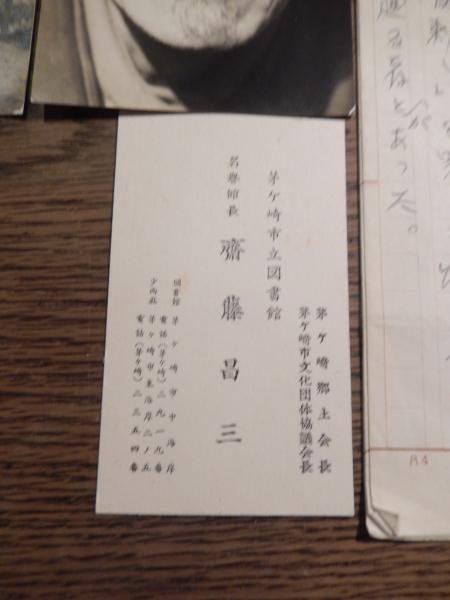 茅ケ崎郷土会長
茅ケ崎市文化団体協議会長
茅ケ崎市立図書館
名誉館長 齋藤昌三
図書館 茅ケ崎市中海岸
電話(茅ケ崎)二九一九番
少雨荘 茅ケ崎市東海岸二ノ五
電話(茅ケ崎)二三五四番
であった。
A4